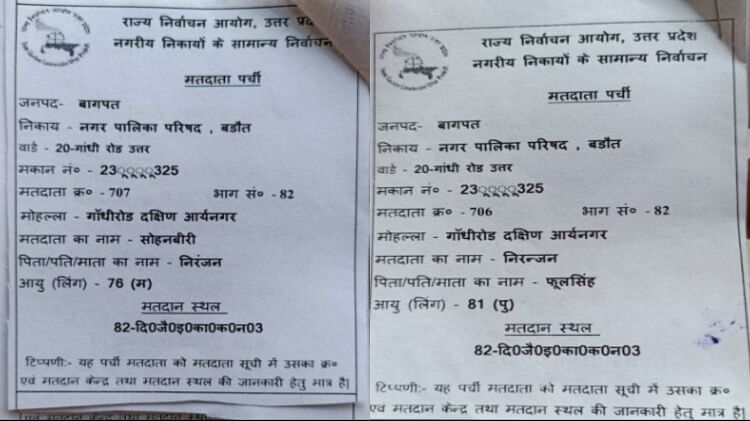 राज्य निर्वाचन आयोग, उत्तर प्रद
नगरीय निकायों के सामान्य निर्वाचन
मतदाता पर्ची
जनपद- बागपत
निकाय - नगर पालिका परिषद , बडौत
वार्ड - 20-गांधी रोड उत्तर
मकान नं० - 23ूूूू325
मतदाता क्र० - 707 भाग सं० - 82
मोहल्ला - गॉधीरोड दक्षिण आर्यनगर
मतदाता का नाम - सोहनबीरी
पिता/पति/माता का नाम - निरंजन
आयु (लिंग) - 76 (म)
मतदान स्थल
82-दि0जै0इ0का0क0न03
टिप्पणी:- यह पर्ची मतदाता को मतदाता सूची में उसका क्र०
एवं मतदान केन्द्र तथा मतदान स्थल की जानकारी हेतु मात्र है|
राज्य निर्वाचन आयोग, उत्तर प्रदेश
नगरीय निकायों के सामान्य निर्वाचन
मतदाता पर्ची
जनपद- बागपत
निकाय - नगर पालिका परिषद , बडौत
वार्ड - 20-गांधी रोड उत्तर
मकान नं० - 23ूूूू325
मतदाता क्र० - 706 भाग सं० - 82
मोहल्ला - गॉधीरोड दक्षिण आर्यनगर
मतदाता का नाम - निरन्जन
पिता/पति/माता का नाम - फूलसिंह
आयु (लिंग) - 81 (पु)
मतदान स्थल
82-दि0जै0इ0का0क0न03
टिप्पणी:- यह पर्ची मतदाता को मतदाता सूची में उसका क्र०
एवं मतदान केन्द्र तथा मतदान स्थल की जानकारी हेतु मात्र है|